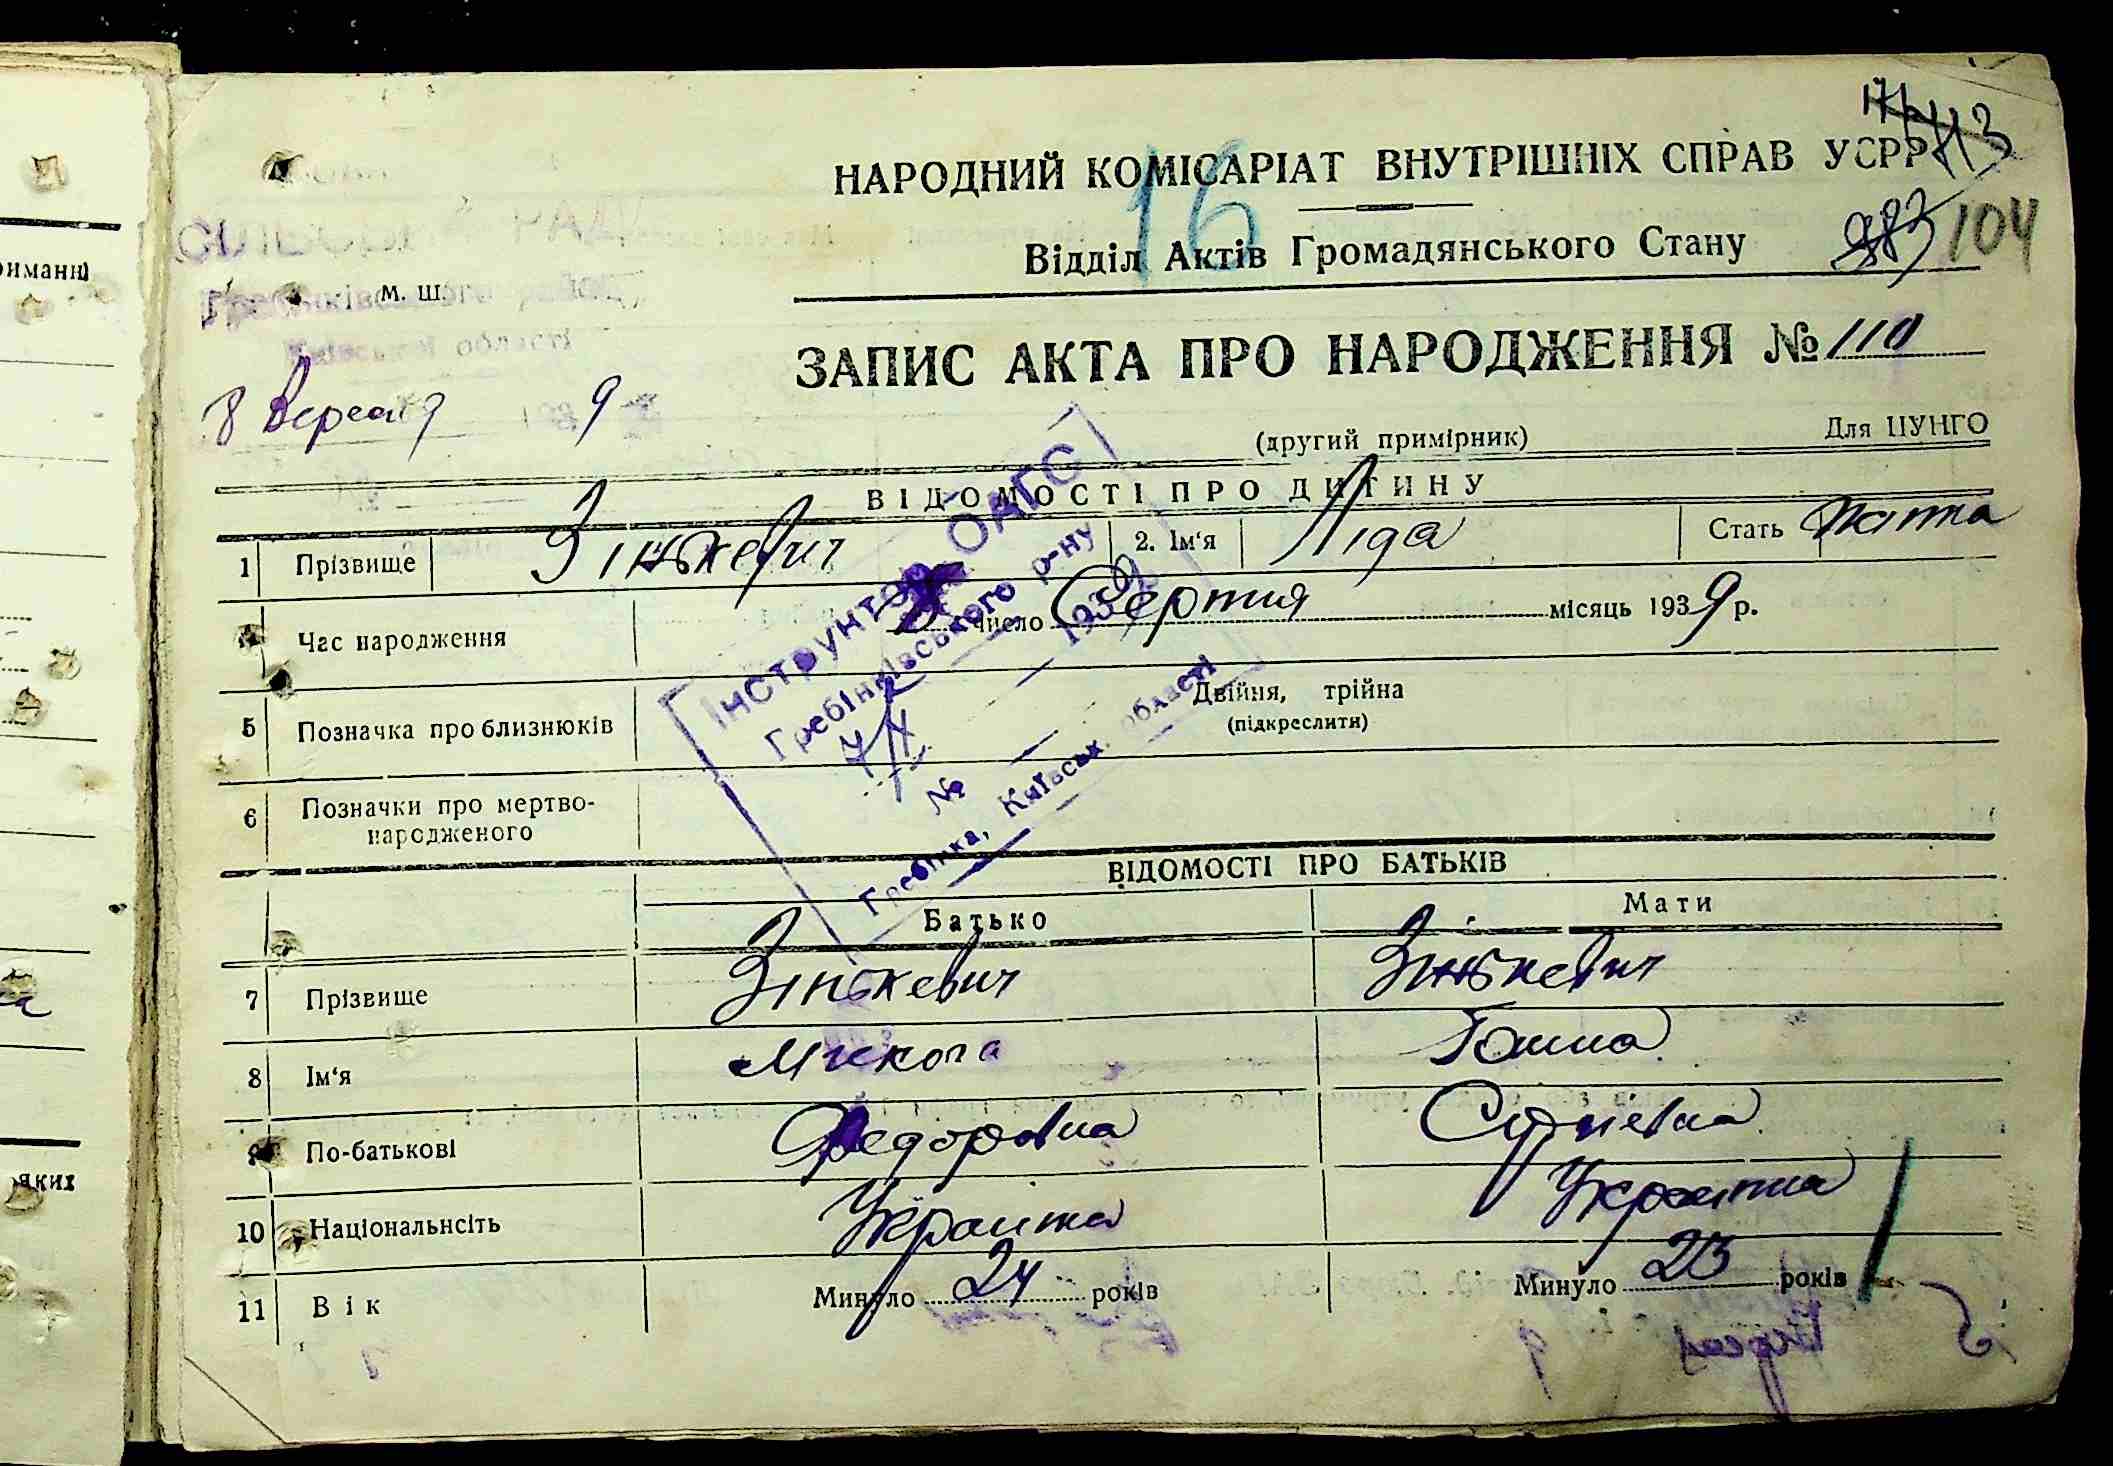 НАРОДНИЙ КОМІСАРІАТ ВНУТРІШНІХ СПРАВ УСРР
16
104
Відділ Актів Громадянського Стану
СІЛЬСЬК РАДА
м. ш.
Гребінківського району
Київської області
ЗАПИС АКТА ПРО НАРОДЖЕННЯ № 110
8 Вересня 1939
(другий примірник) Для ЦУНГО
ВІДОМОСТІ ПРО ДИТИНУ
1 Прізвище Зінькевич 2. Ім'я Ліда Стать
Час народження число Серпня місяць 1939 р.
Інструнтор ОАГС
Гребінківського р-ну
1939
№
Гребінка, Київськ. області
5 Позначка про близнюків Двійня, трійня
(підкреслити)
6 Позначки про мертво-
народженого
ВІДОМОСТІ ПРО БАТЬКІВ
Батько Мати
7 Прізвище Зінькевич Зінькевич
8 Ім'я Микола Ганна
9 По-батькові Федоровиа
10 Національнсіть
11 Вік Минуло 24 років Минуло 23 років
риманні
яких